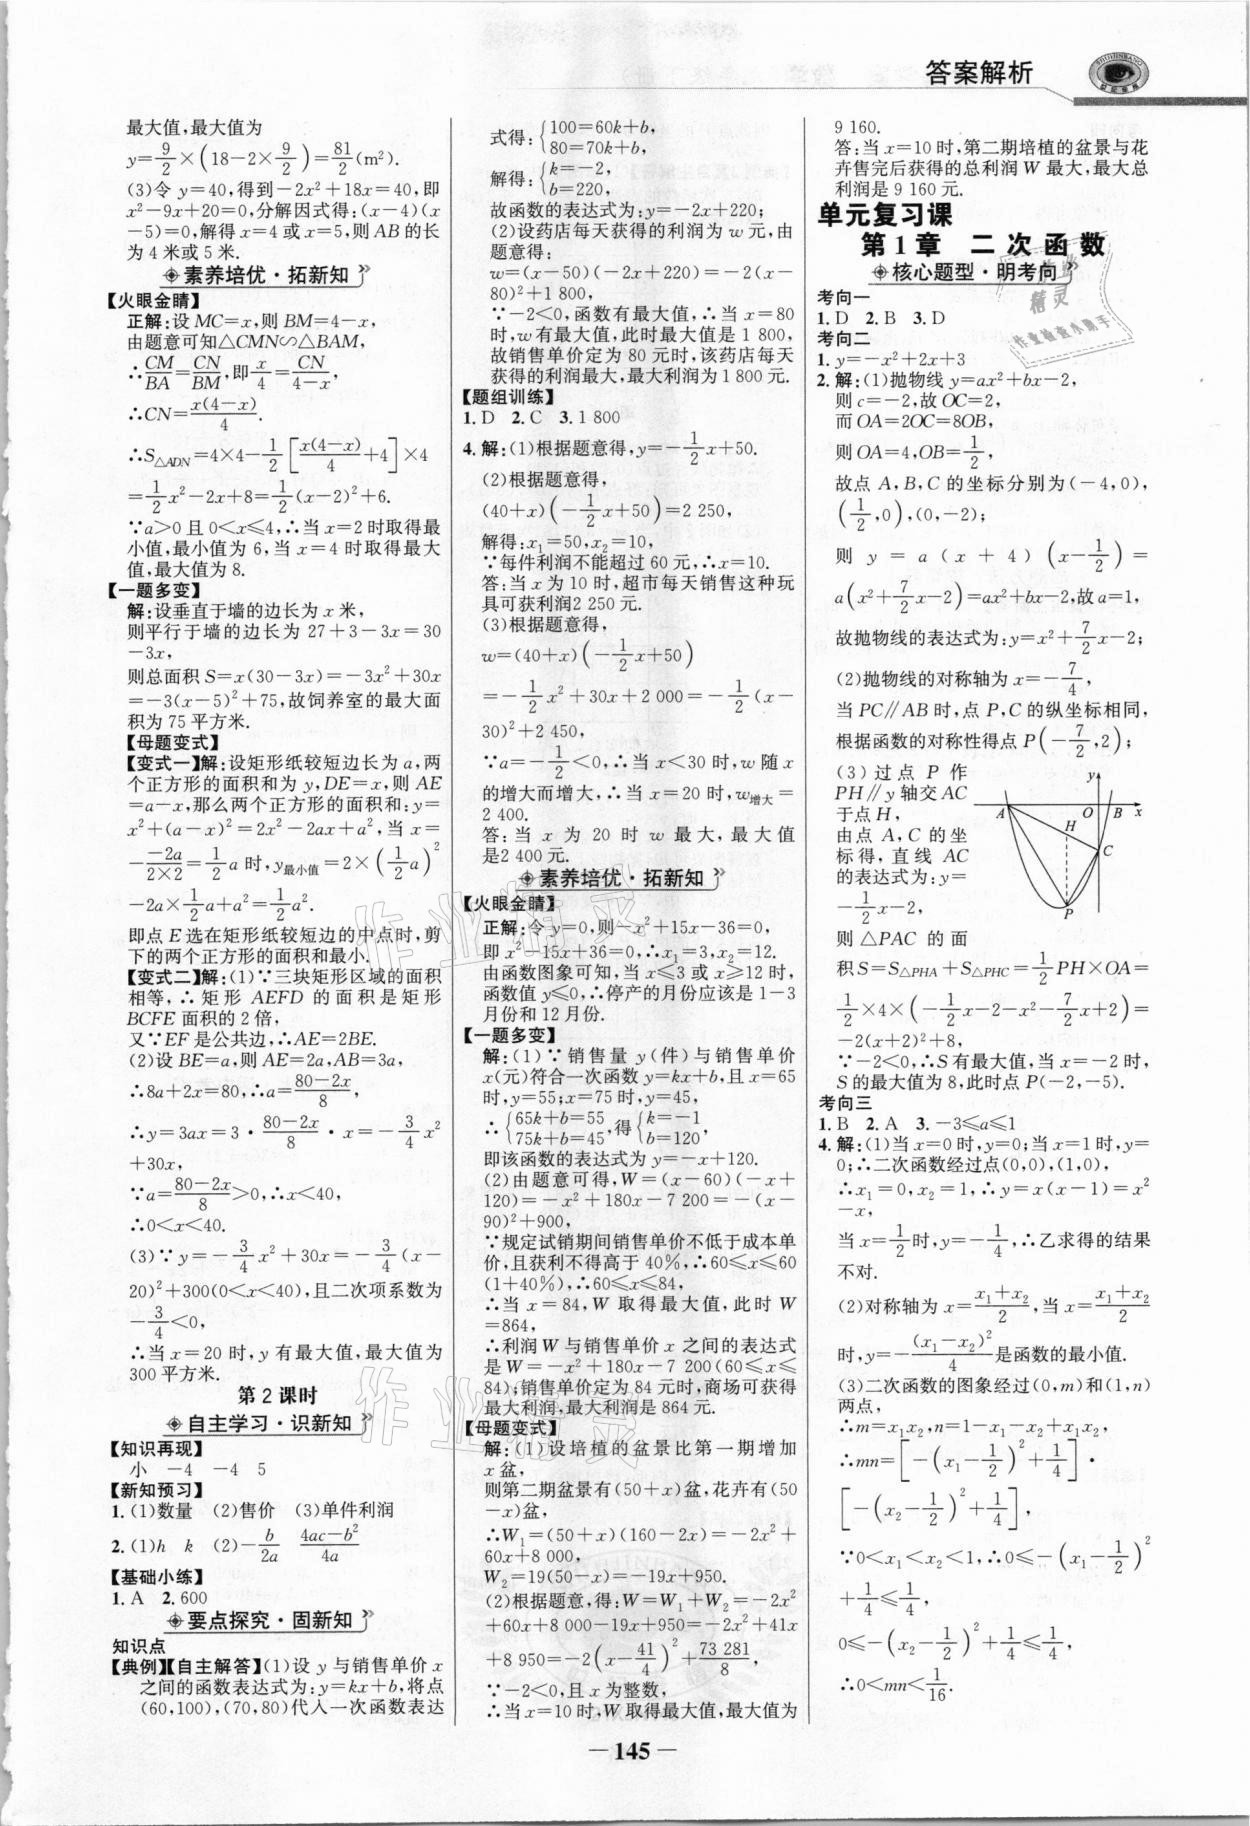 答案解析
最大值,最大值为
y=9/2×(18-2×9/2)=81/2(m²).
(3)令 y=40,得到-2x²+18x=40,即
x²-9x+20=0,分解因式得:(x-4)(x
-5)=0,解得 x=4 或 x=5,则 AB 的长
为 4 米或 5 米.
素养培优·拓新知
【火眼金睛】
正解:设 MC=x,则 BM=4-x,
由题意可知△CMN∽△BAM,
∴CM/BA=CN/BM,即x/4=CN/(4-x),
∴CN=x(4-x)/4.
∴S△ADN=4×4-1/2[x(4-x)/4+4]×4
=1/2x²-2x+8=1/2(x-2)²+6.
∵a>0 且 0<x≤4,∴当 x=2 时取得最
小值,最小值为 6,当 x=4 时取得最大
值,最大值为 8.
【一题多变】
解:设垂直于墙的边长为 x 米,
则平行于墙的边长为 27+3-3x=30
-3x,
则总面积 S=x(30-3x)=-3x²+30x
=-3(x-5)²+75,故饲养室的最大面
积为 75 平方米.
【母题变式】
【变式一】解:设矩形纸较短边长为 a,两
个正方形的面积和为 y,DE=x,则 AE
=a-x,那么两个正方形的面积和:y=
x²+(a-x)²=2x²-2ax+a²,当 x=
-(-2a)/(2×2)=1/2a 时,y最小值=2×(1/2a)²
-2a×1/2a+a²=1/2a².
即点 E 选在矩形纸较短边的中点时,剪
下的两个正方形的面积和最小.
【变式二】解:(1)∵三块矩形区域的面积
相等,∴矩形 AEFD 的面积是矩形
BCFE 面积的 2 倍,
又∵EF 是公共边,∴AE=2BE.
(2)设 BE=a,则 AE=2a,AB=3a,
∴8a+2x=80,∴a=(80-2x)/8,
∴y=3ax=3·(80-2x)/8·x=-3/4x²
+30x,
∵a=(80-2x)/8>0,∴x<40,
∴0<x<40.
(3)∵y=-3/4x²+30x=-3/4(x-
20)²+300(0<x<40),且二次项系数为
-3/4<0,
∴当 x=20 时,y 有最大值,最大值为
300 平方米.
第 2 课时
自主学习·识新知
【知识再现】
小 -4 -4 5
【新知预习】
1.(1)数量 (2)售价 (3)单件利润
2.(1)h k (2)-b/2a (4ac-b²)/4a
【基础小练】
1.A 2.600
要点探究·固新知
知识点
【典例】【自主解答】(1)设 y 与销售单价 x
之间的函数表达式为:y=kx+b,将点
(60,100),(70,80)代人一次函数表达
式得:{100=60k+b,
80=70k+b,
解得:{k=-2,
b=220,
故函数的表达式为:y=-2x+220;
(2)设药店每天获得的利润为 w 元,由
题意得:
w=(x-50)(-2x+220)=-2(x-
80)²+1 800,
∵-2<0,函数有最大值,∴当 x=80
时,w 有最大值,此时最大值是 1 800,
故销售单价定为 80 元时,该药店每天
获得的利润最大,最大利润为 1 800 元.
【题组训练】
1.D 2.C 3.1 800
4.解:(1)根据题意得,y=-1/2x+50.
(2)根据题意得,
(40+x)(-1/2x+50)=2 250,
解得:x₁=50,x₂=10,
∵每件利润不能超过 60 元,∴x=10.
答:当 x 为 10 时,超市每天销售这种玩
具可获利润2 250 元.
(3)根据题意得,
w=(40+x)(-1/2x+50)
=-1/2x²+30x+2 000=-1/2(x-
30)²+2 450,
∵a=-1/2<0,∴当 x<30 时,w 随 x
的增大而增大,∴当 x=20 时,w增大=
2 400.
答:当 x 为 20 时 w 最大,最大值
是2 400元.
素养培优·拓新知
【火眼金睛】
正解:令 y=0,则-x²+15x-36=0,
即 x²-15x+36=0,∴x₁=3,x₂=12.
由函数图象可知,当 x≤3 或 x≥12 时,
函数值 y≤0,∴停产的月份应该是 1-3
月份和 12 月份.
【一题多变】
解:(1)∵销售量 y(件)与销售单价
x(元)符合一次函数 y=kx+b,且 x=65
时,y=55;x=75 时,y=45,
∴{65k+b=55
75k+b=45,得{k=-1
b=120,
即该函数的表达式为 y=-x+120.
(2)由题意可得,W=(x-60)(-x+
120)=-x²+180x-7 200=-(x-
90)²+900,
∵规定试销期间销售单价不低于成本单
价,且获利不得高于 40%,∴60≤x≤60
(1+40%),∴60≤x≤84,
∴当 x=84,W 取得最大值,此时 W
=864,
∴利润 W 与销售单价 x 之间的表达式
是 W=-x²+180x-7 200(60≤x≤
84);销售单价定为 84 元时,商场可获得
最大利润,最大利润是 864 元.
【母题变式】
解:(1)设培植的盆景比第一期增加
x 盆,
则第二期盆景有(50+x)盆,花卉有(50
-x)盆,
∴W₁=(50+x)(160-2x)=-2x²+
60x+8 000,
W₂=19(50-x)=-19x+950.
(2)根据题意,得:W=W₁+W₂=-2x²
+60x+8 000-19x+950=-2x²+41x
+8 950=-2(x-41/4)²+73 281/8,
∵-2<0,且 x 为整数,
∴当 x=10 时,W 取得最大值,最大值为
9 160.
答:当 x=10 时,第二期培植的盆景与花
卉售完后获得的总利润 W 最大,最大总
利润是 9 160 元.
单元复习课
第 1 章 二次函数
核心题型·明考向
考向一
1.D 2.B 3.D
考向二
1.y=-x²+2x+3
2.解:(1)抛物线 y=ax²+bx-2,
则 c=-2,故 OC=2,
而 OA=2OC=8OB,
则 OA=4,OB=1/2,
故点 A,B,C 的坐标分别为(-4,0),
(1/2,0),(0,-2);
则 y=a(x+4)(x-1/2)=
a(x²+7/2x-2)=ax²+bx-2,故 a=1,
故抛物线的表达式为:y=x²+7/2x-2;
(2)抛物线的对称轴为 x=-7/4,
当 PC∥AB 时,点 P,C 的纵坐标相同,
根据函数的对称性得点 P(-7/2,2);
(3)过点 P 作
PH∥y 轴交 AC
于点 H,
由点 A,C 的坐
标得,直线 AC
的表达式为:y=
-1/2x-2,
y
A O B x
H
C
P
则△PAC 的面
积 S=S△PHA+S△PHC=1/2PH×OA=
1/2×4×(-1/2x-2-x²-7/2x+2)=
-2(x+2)²+8,
∵-2<0,∴S 有最大值,当 x=-2 时,
S 的最大值为 8,此时点 P(-2,-5).
考向三
1.B 2.A 3.-3≤a≤1
4.解:(1)当 x=0 时,y=0;当 x=1 时,y=
0;∴二次函数经过点(0,0),(1,0),
∴x₁=0,x₂=1,∴y=x(x-1)=x²
-x,
当 x=1/2时,y=-1/4,∴乙求得的结果
不对.
(2)对称轴为 x=(x₁+x₂)/2,当 x=(x₁+x₂)/2
时,y=-(x₁-x₂)²/4是函数的最小值.
(3)二次函数的图象经过(0,m)和(1,n)
两点,
∴m=x₁x₂,n=1-x₁-x₂+x₁x₂,
∴mn=[-(x₁-1/2)²+1/4]·
[-(x₂-1/2)²+1/4],
∵0<x₁<x₂<1,∴0≤-(x₁-1/2)²
+1/4≤1/4,
0≤-(x₂-1/2)²+1/4≤1/4,
∴0<mn<1/16.
— 145 —
作业精灵
作业精灵
作业精灵
作业检查小助手